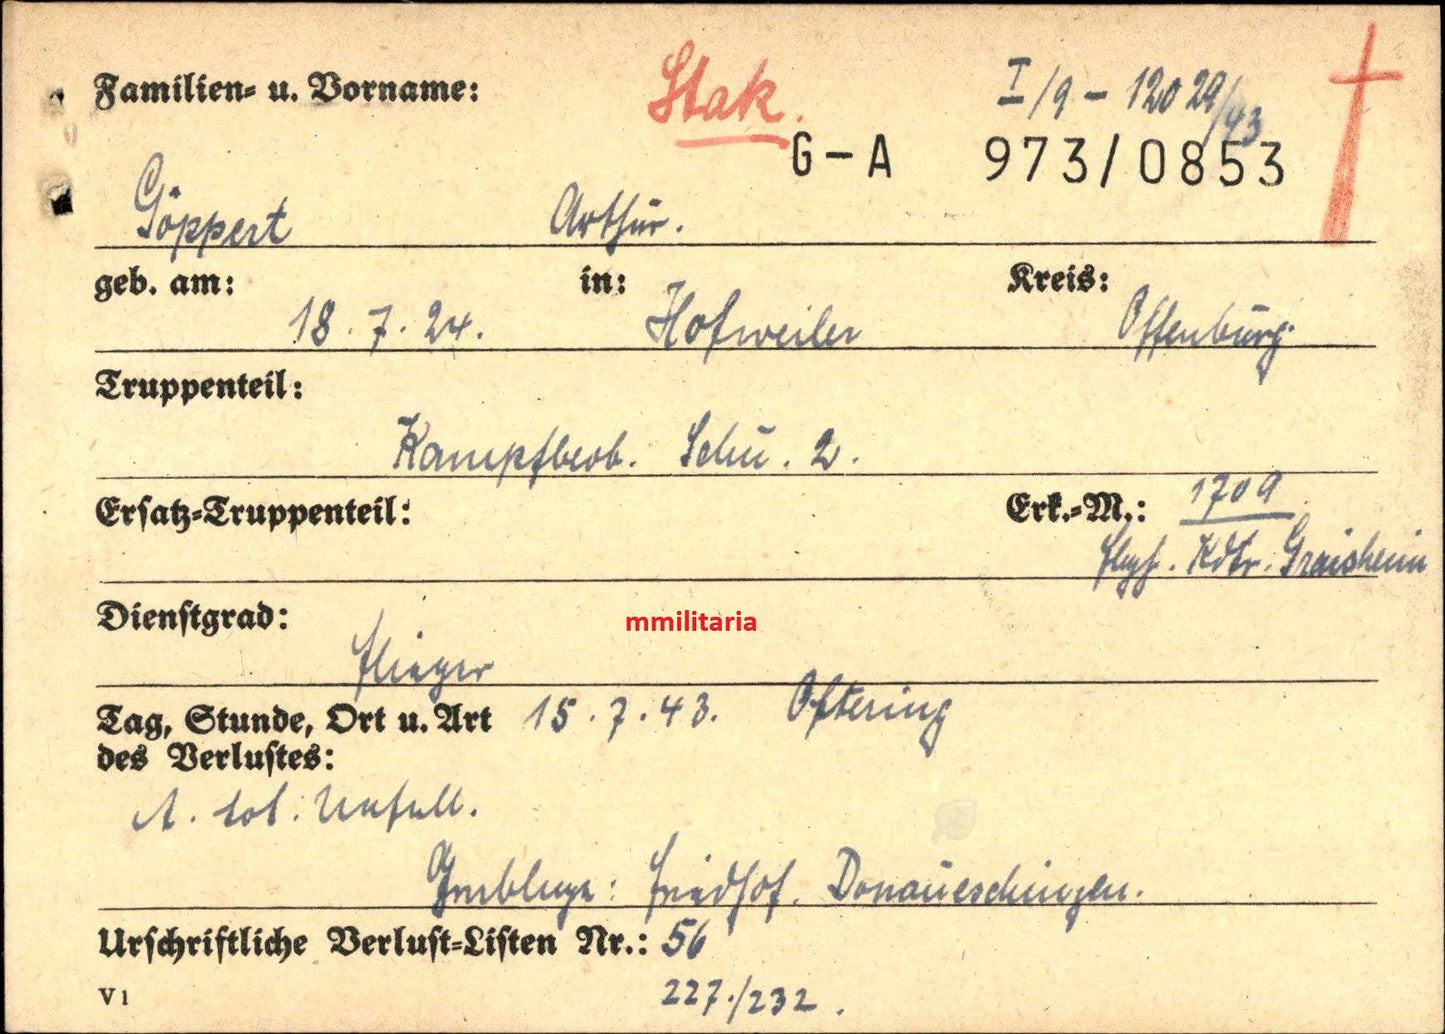 Familien- u. Vorname:
Stak.
I/9 - 120 29/43
G-A 973/0853
Göppert Arthur.
geb. am: in: Kreis:
18. 7. 24. Hofweiler Offenburg.
Truppenteil:
Kampfbeob. Schu. 2.
Ersatz-Truppenteil: Erk.-M.: 1709
Flugh. Kdtr.
Dienstgrad:
mmilitaria
Flieger
Tag, Stunde, Ort u. Art 15. 7. 43. Oftering
des Verlustes:
A. tot. Unfall.
Grablage: Friedhof. Donaueschingen.
Urschriftliche Verlust-Listen Nr.: 56
V1
227./232.